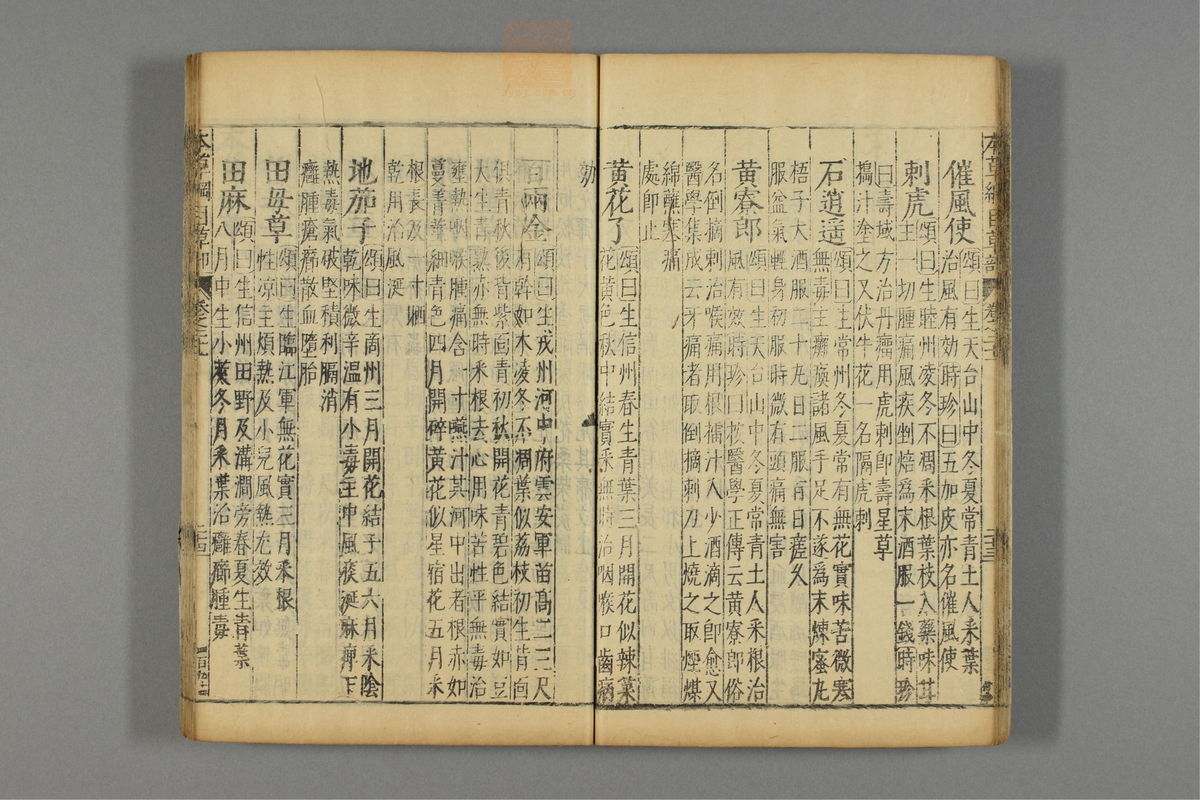 本草綱目草部 卷之二十一
催風使 頌曰生天台山中冬夏常青土人采葉
治風有効時珍曰五加皮亦名催風使
刺虎 頌曰生睦州凌冬不凋采根葉枝入藥味甘
主一切腫痛風疾剉焙爲末酒服一錢時珍
曰壽域方治丹瘤用虎刺卽壽星草
搗汁塗之又伏牛花一名隔虎刺
石逍遥 頌曰生常州冬夏常有無花實味苦微寒
無毒主癱瘓諸風手足不遂爲末煉蜜丸
梧子大酒服二十丸日二服百日瘥久
服益氣輕身初服時微有頭痛無害
黄寮郎 頌曰生天台山中冬夏常青土人采根治
風有效時珍曰按醫學正傳云黄寮郎俗
名倒摘刺治喉痛用根擂汁入少酒滴之卽愈又
醫學集成云牙痛者取倒摘刺刀上燒之取煙煤
綿蘸塞痛
處卽止
黄花了 頌曰生信州春生青葉三月開花似辣菜
花黄色秋中結實采無時治咽喉口齒病
効
百兩金 頌曰生戎州河中府雲安軍苗高二三尺
有幹如木凌冬不凋葉似荔枝初生背面
俱青秋後背紫面青初秋開花青碧色結實如豆
大生青熟赤無時采根去心用味苦性平無毒治
壅熱咽喉腫痛含一寸嚥汁其河中出者根赤如
蔓菁莖細青色四月開碎黄花似星宿花五月采
根長及一寸晒
乾用治風涎
地茄子 頌曰生商州三月開花結子五六月采陰
乾味微辛温有小毒主中風痰涎麻痺下
熱毒氣破堅積利膈消
癰腫瘡癤散血墮胎
田母草 頌曰生臨江軍無花實三月采根
性凉主煩熱及小兒風熱尤效
田麻 頌曰生信州田野及溝澗旁春夏生青葉
八月中生小莢冬月采葉治癰癤腫毒
本草綱目草部 卷之二十一